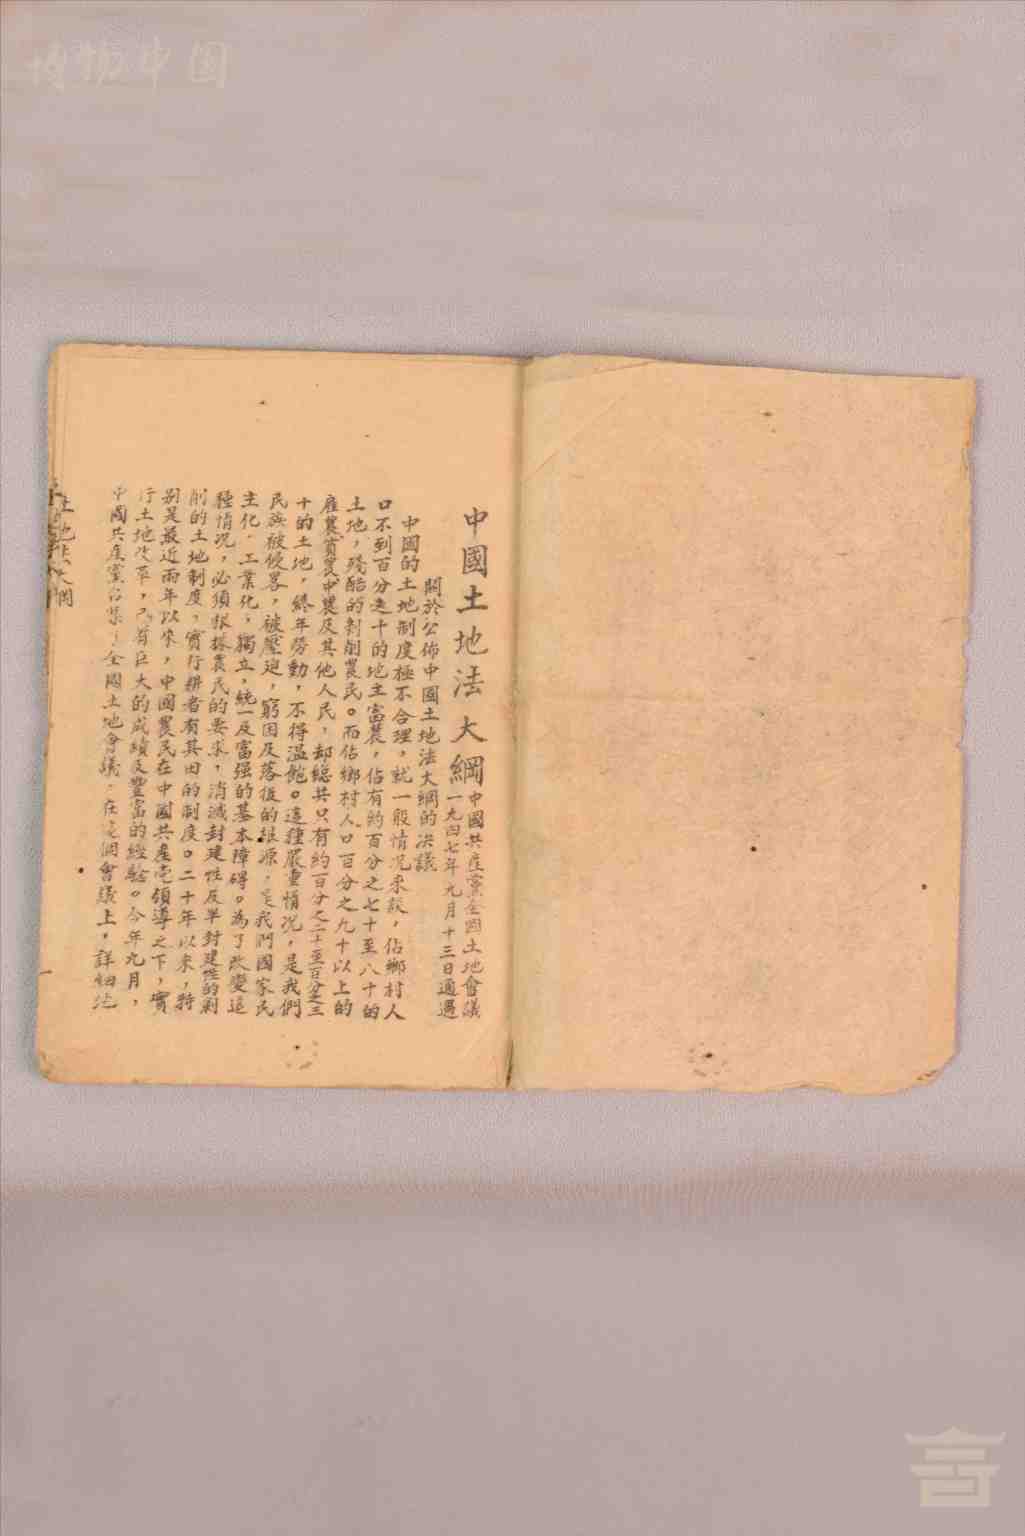 博物中国
中國土地法大綱
中國共産黨全國土地會議
一九四七年九月十三日通過
關於公佈中國土地法大綱的决議
中國的土地制度極不合理，就一般情况來説，佔鄉村人
口不到百分之十的地主富農，佔有約百分之七十至八十的
土地，殘酷的剥削農民。而佔鄉村人口百分之九十以上的
雇農、貧農、中農及其他人民，却總共只有約百分之二十至百分之三
十的土地，終年勞動，不得温飽。這種嚴重情况，是我們
民族被侵畧，被壓迫，窮困及落後的根源，是我們國家民
主化、工業化，獨立，統一及富强的基本障碍。為了改變這
種情况，必須根據農民的要求，消滅封建性及半封建性的剥
削的土地制度，實行耕者有其田的制度。二十年以來，特
别是最近兩年以來，中國農民在中國共産党領導之下，實
行土地改革，已有巨大的成績及豐富的經驗。今年九月，
中國共産黨召集了全國土地會議，在這個會議上，詳細地
土地法大綱